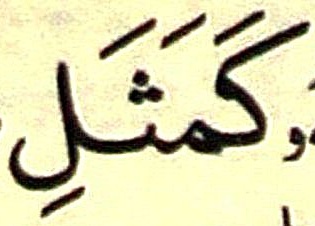 كَمَثَلِ